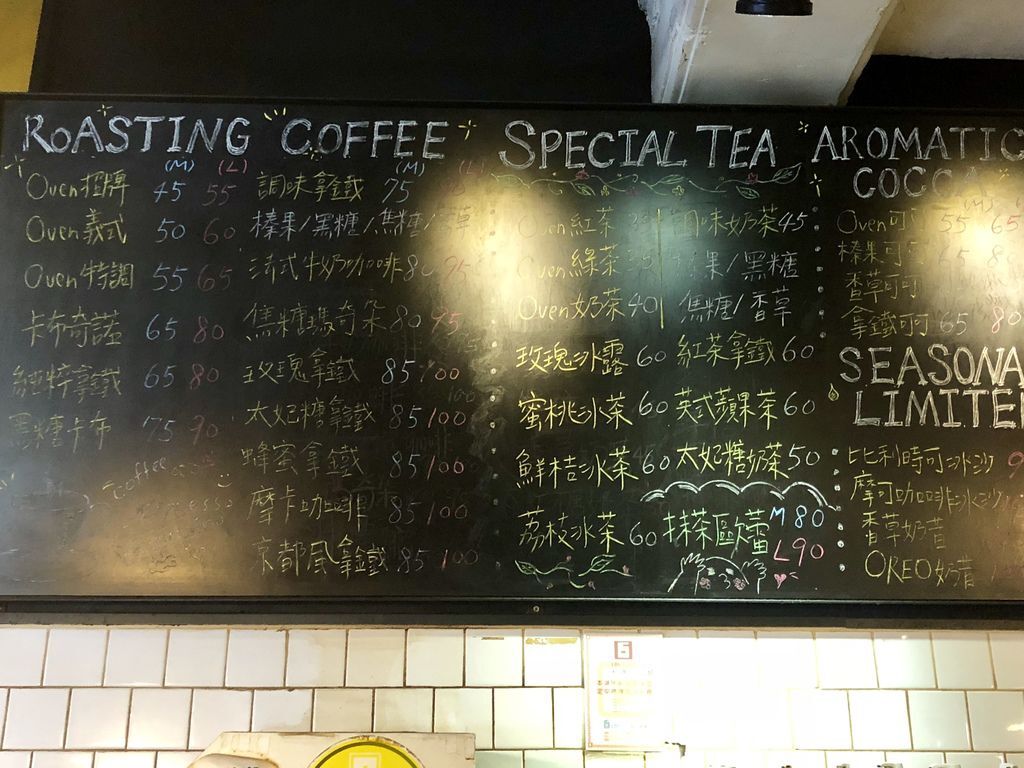 ROASTING COFFEE
(M) (L) (M) (L)
Oven招牌 45 55
Oven義式 50 60
Oven特調 55 65
卡布奇諾 65 80
純粹拿鐵 65 80
黑糖卡布 75 90
coffee
調味拿鐵 75
榛果/黑糖/焦糖/香草
法式牛奶咖啡 80 95
焦糖瑪奇朵 80 95
玫瑰拿鐵 85 100
太妃糖拿鐵 85 100
蜂蜜拿鐵 85 100
摩卡咖啡 85 100
京都風拿鐵 85 100
SPECIAL TEA
Oven紅茶
Oven綠茶
Oven奶茶 40
玫瑰冰露 60
蜜桃冰茶 60
鮮桔冰茶 60
荔枝冰茶 60
味奶茶 45
果/黑糖
焦糖/香草
紅茶拿鐵 60
英式蘋果茶 60
太妃糖奶茶 50
抹茶區歐蕾 M80
L90
AROMATIC
COCOA
(M)
Oven可可 55 65
榛果可可 65 80
香草可可
拿鐵可可 65 80
SEASONA
LIMITE
比利時可冰沙
摩可咖啡冰沙
香草奶昔
OREO奶昔
6